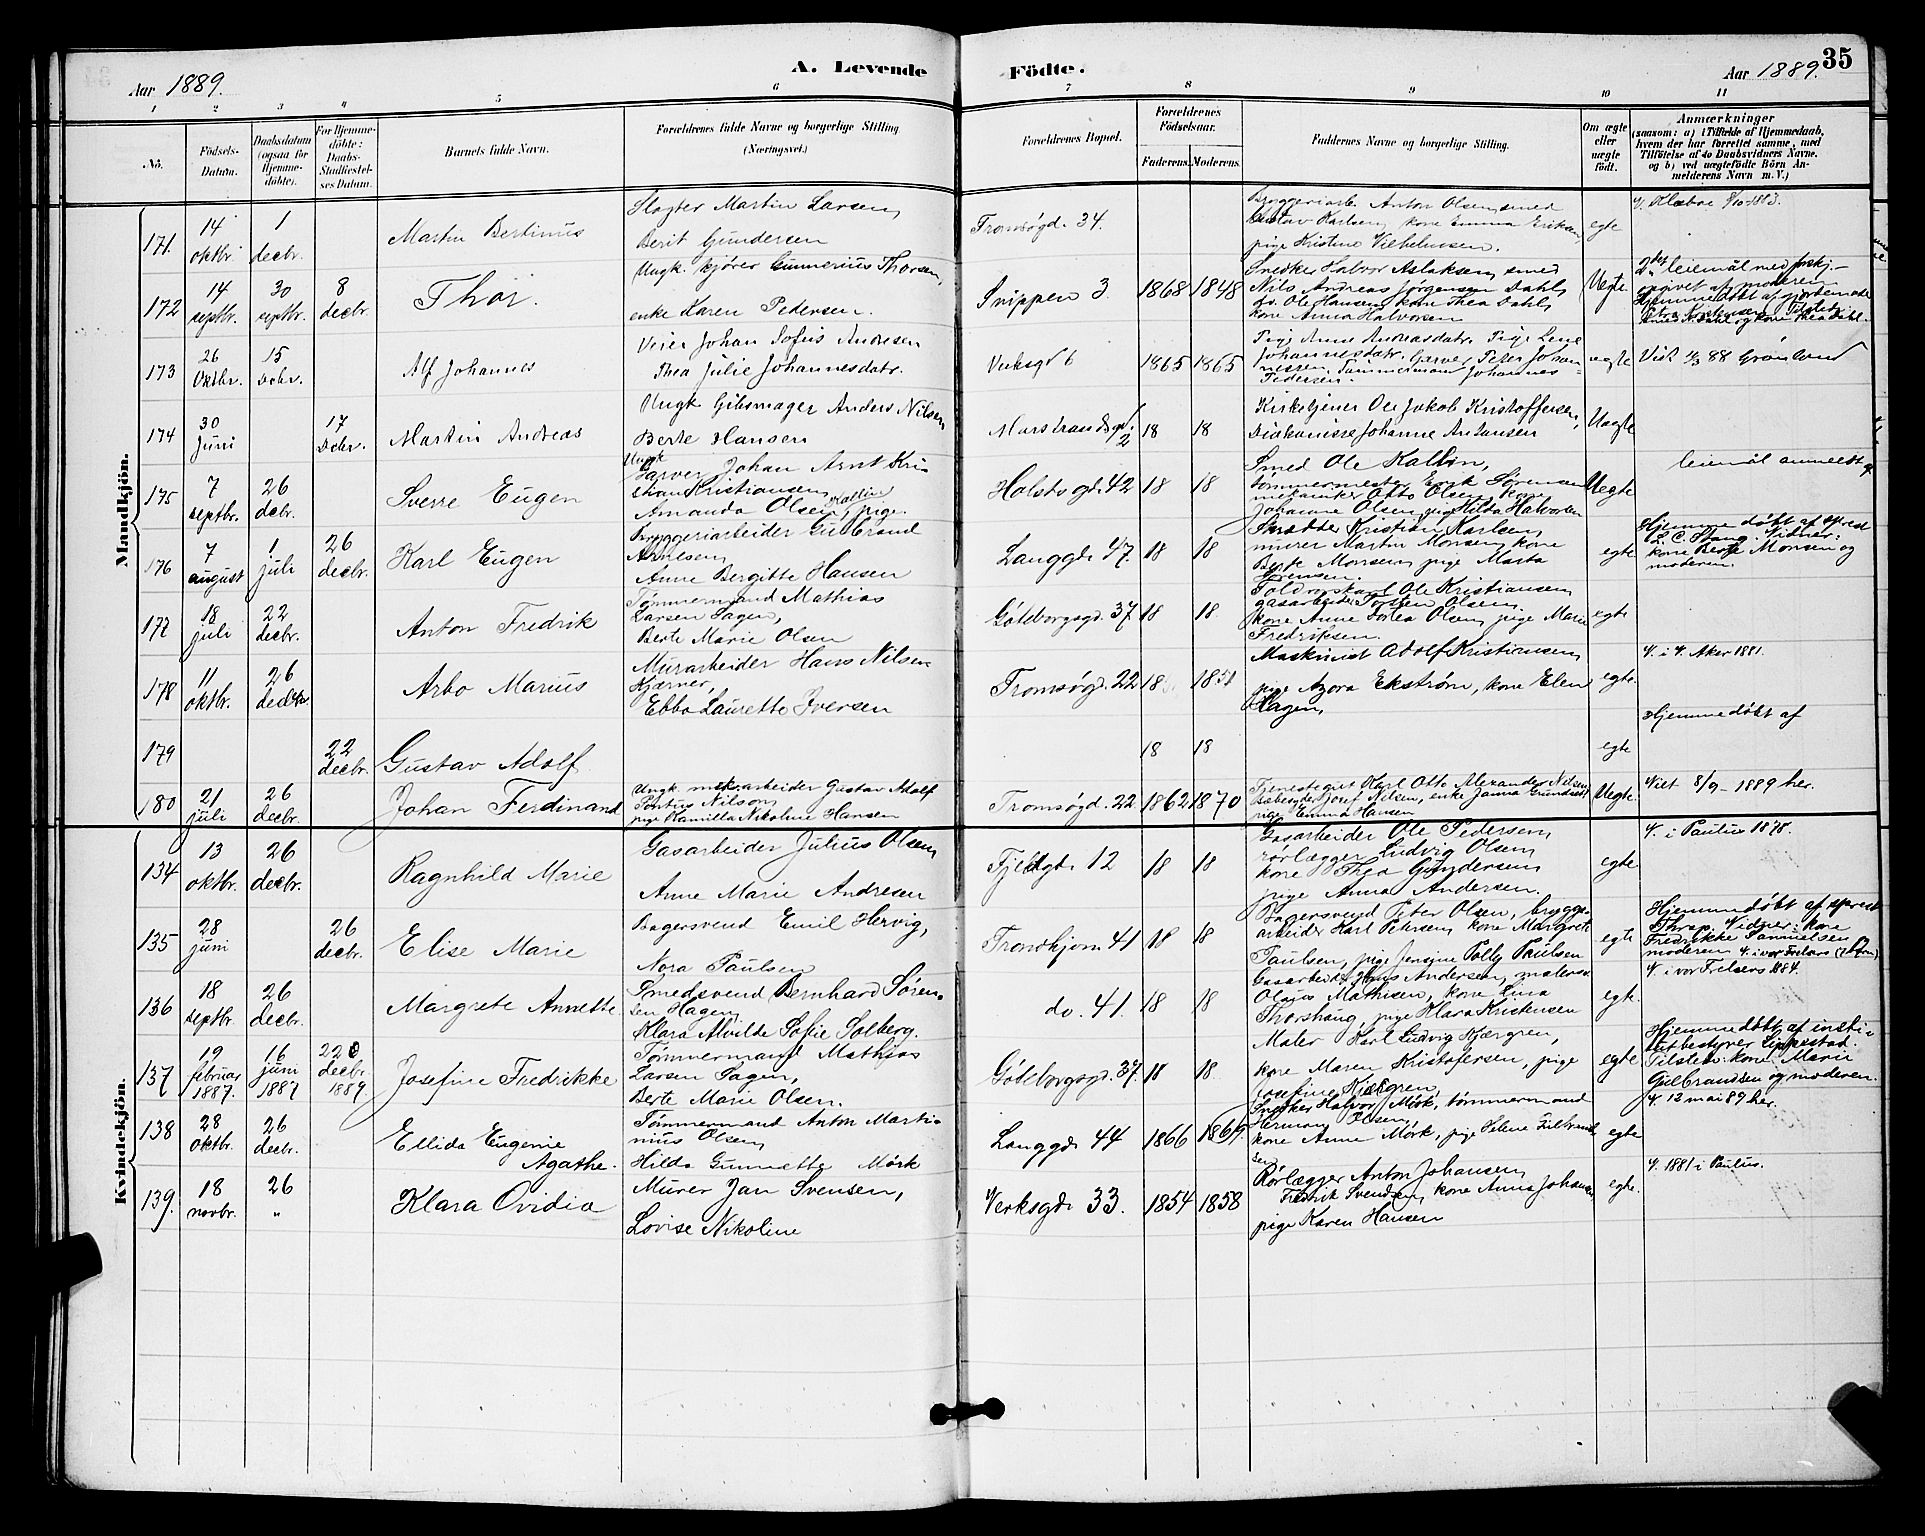 Aar 1889.
A. Levende Födte.
Aar 1889.
35
1 2 3 4 5 6 7 8 9 10 11
No.
Födsels-Datum.
Daabsdatum (ogsaa for Hjemme-döbte).
For Hjemme-döbte: Daabs-Stadfæstel-ses Datum.
Barnets fulde Navn.
Forældrenes fulde Navne og borgerlige Stilling (Næringsvei.)
Forældrenes Bopæl.
Forældrenes Födselsaar.
Faderens. Moderens.
Faddernes Navne og borgerlige Stilling.
Om ægte eller uægte födt.
Anmærkninger
(saasom: a) i Tilfælde af Hjemmedaab, hvem der har forrettet samme, med Tilföielse af do Daabsvidners Navne, og b) ved uægtefödte Börn An-melderens Navn m. V.)
Mandkjön.
171. 14 oktbr. 1 decbr. Martin Bertinus
Slagter Martin Larsen,
Berit Gundersen
Tromsøgd. 34.
Bryggeriarb. Anton Olsen, smed
Gustav Karlsen, kone Emma Eriksen,
pige Kristine Vilhelmsen.
egte
172 14 septbr. 30 septbr. 8 decbr. Thor.
Ungk. kjører Gunnerius Thorsen,
enke Karen Pedersen.
Snippen 3. 1868 1848
Snedker Halvor Aslaksen, smed
Nils Andreas Jørgensen Dahl,
do. Ole Hansen, kone Thea Dahl,
kone Anna Halvorsen
Uegte
leiemål med forskj.
opgivet af moderen
173 26 Oktbr. 15 Decbr. Alf Johannes
Veier Johan Sofus Andresen
Thea Julie Johannesdatr.
Verksgd 6 1865 1865
Pige Anne Andreasdatr. Pige Lene
Johannesdatr. Garver Peter Johan-
nessen. Tømmermand Johannes
Pedersen.
uegte
Viet 4/3 88 Grønland
174 30 Juni 17 Decbr. Martin Andreas
Ungk. Gibsmager Anders Nilsen
Berte Hansen
Marstrandsgd. 2 18 18
Kirketjener Ole Jakob Kristoffersen,
Diakonisse Johanne Antonsen
Uegte
175 7 septbr. 26 decbr. Sverre Eugen
Ungk
Garver Johan Arnt Kri-
stian Kristiansen,
Amanda Olsen, pige.
Holstsgd. 42 18 18
Smed Ole Kallin,
tømmermester Erik Sørensen
mekaniker Otto Olsen, kone
Johanne Olsen, pige Hilda Halvorsen
Uegte
leiemål anmeldt
176 7 august 1 juli 26 decbr. Karl Eugen
Bryggeriarbeider Gulbrand
Arnesen,
Anne Bergitte Hansen
Langgd. 47. 18 18
Skrædder Kristian Karlsen,
murer Martin Monsen, kone
Berte Monsen, pige Marta
Sørensen.
egte
Hjemmedøbt af sprest
L. C. Stang. Vidner:
kone Berte Monsen og
moderen.
177 18 juli 22 decbr. Anton Fredrik
Tømmermand Mathias
Larsen Hagen,
Berte Marie Olsen
Göteborgsgd. 37 18 18.
Toldropskarl Ole Kristiansen
gasarbeider Torsten Olsen,
kone Anne Torea Olsen, pige Marie
Fredriksen.
egte
178 11 oktbr. 26 decbr. Arbo Marius
Murarbeider Hans Nilsen
Kjærner,
Ebba Laurette Iversen
Tromsøgd. 22 18 1851
Maskinist Adolf Kristiansen,
pige Agora Ekstrøm, kone Elen
Hagen,
egte.
V. i V. Aker 1881.
179 22 decbr. Gustav Adolf
18 18
egte
Hjemmedøbt af
180 21 juli 26 decbr. Johan Ferdinand
Ungk. msk.arbeider Gustav Adolf
Pontus Nilson,
pige Kamilla Nikoline Hansen
Tromsøgd. 22 1862 1870
Tjenestegut Karl Otto Alexander Nilsen,
Josef Nilsen, enke Janna Gundersen,
pige Emma Hansen
Uegte.
Viet 8/9 - 1889 her.
Kvindekjön.
134 13 oktbr. 26 decbr. Ragnhild Marie
Gasarbeider Julius Olsen,
Anne Marie Andresen
Fjeldgd. 12 18 18
Gasarbeider Ole Pedersen,
rørlægger Ludvig Olsen,
kone Thea Gundersen,
pige Anna Andersen.
egte
V. i Paulus 1878.
135 28 juni 26 decbr. Elise Marie
Bagersvend Emil Hervig,
Nora Paulsen
Trondhjem. 41 18 18
Bagersvend Peter Olsen, brygge-
arbeider Karl Petersen, kone Margrete
Paulsen, pige Jensine Polly Paulsen
egte
Hjemmedøbt af sprest
Thrap. Vidner: kone
Fredrikke Samuelsen
moderen V. i vor Frelsers
136 18 septbr. 26 decbr. Margrete Annette.
Smedsvend Bernhard Søren-
sen Hagen,
Klara Alvilde Sofie Solberg.
do. 41. 18 18
Gasarbeider Hans Andersen, malersv.
Olaus Mathisen, kone Lina
Thorshaug, pige Klara Kristensen
egte.
V. i vor Frelsers 1884.
137 19 februar 1887. 16 juni 1887 22 decbr. 1889. Josefine Fredrikke
Tømmermand Mathias
Larsen Hagen,
Berte Marie Olsen.
Göteborgsgd. 37. 18 18.
Maler Karl Ludvig Kjærgren,
kone Maren Kristofersen, pige
Josefine Kjærgren,
egte
Hjemmedøbt af insti-
tutbestyrer Lippestad.
Tilstede: kone Marie
Gulbrandsen og moderen.
138 28 oktbr. 26 decbr. Ellida Eugenie
Agathe.
Tømmermand Anton Marti-
nius Olsen,
Hilda Gunnette Mørk
Langgd. 44 1866 1869.
Snedker Halvor Mørk, tømmermand
Herman Olsen,
kone Anne Mørk, pige Helene Gulbrand-
sen
egte
V. 12 mai 89 her.
139. 18 novbr. 26 " Klara Ovidia
Murer Jan Svensen,
Lovise Nikoline
Verksgd. 33. 1854 1858
Rørlægger Anton Johansen,
Fredrik Svendsen, kone Anna Johansen
pige Karen Hansen
egte.
V. 1881 i Paulus.